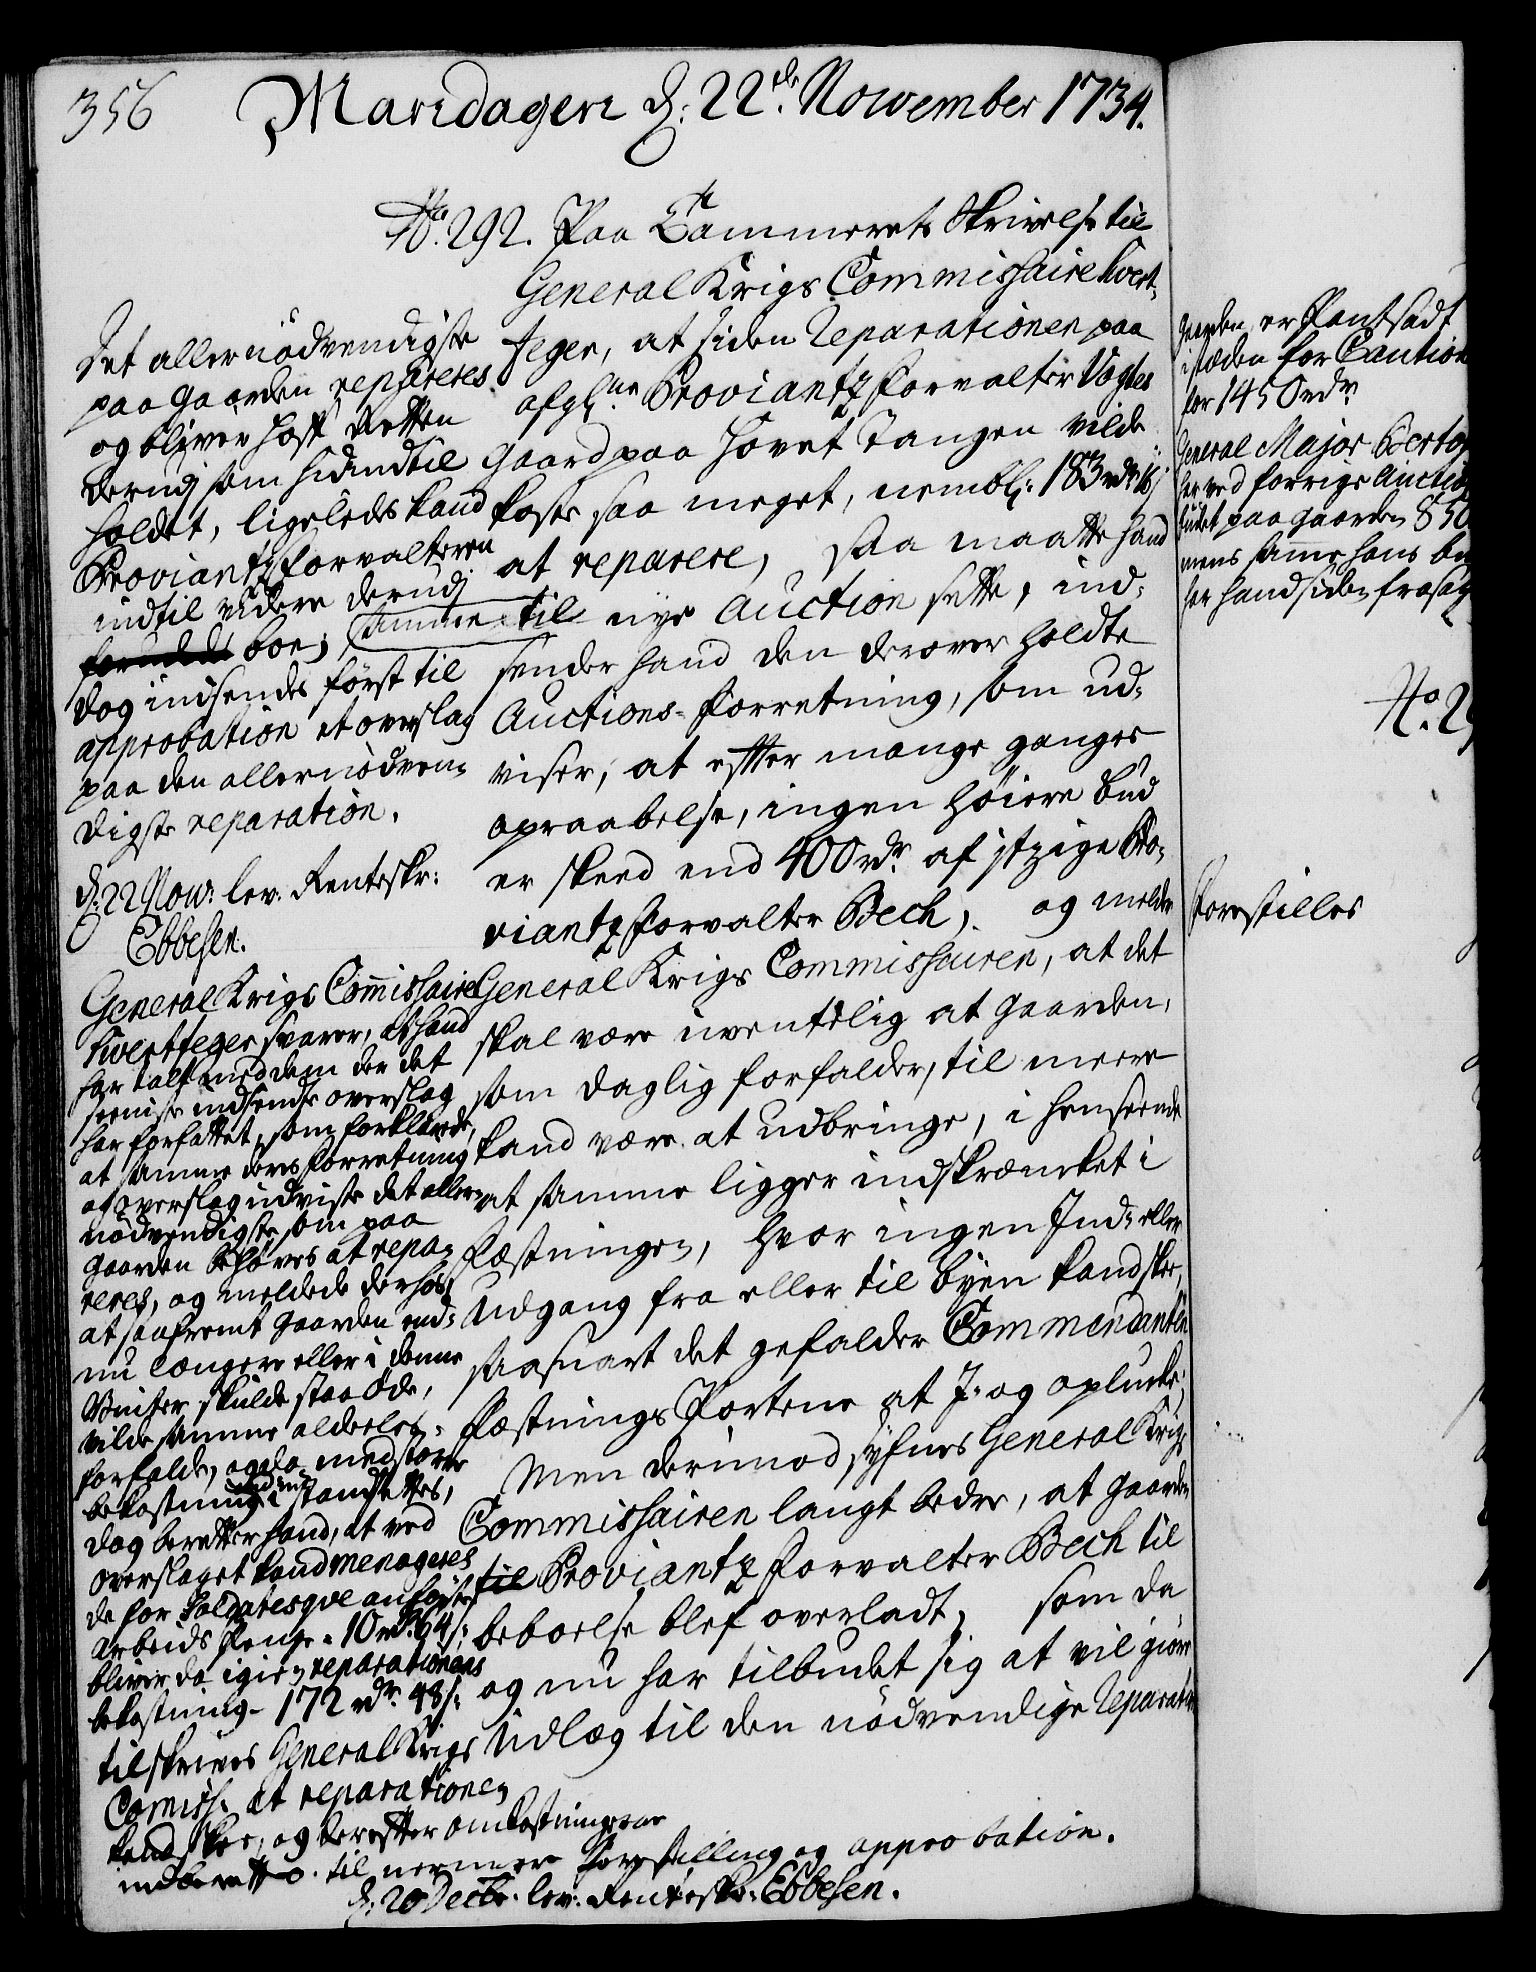 356
Mandagen d: 22de Nowember 1734.
No. 292. Paa Cammerets Skrivelse til
General Krigs Commissaire Kvert-
feger, at siden Reparationen paa
afgl:ne Proviantz Forvalter Vogtes
Gaard paa Hovet Tangen vilde
koste saa meget, nembl: 183 rdr 16 s
at reparere, saa maatte hand
samme til nye Auction sette, ind-
sender hand den derover holdte
Auctions-Forretning, som ud-
viser, at efter mange ganges
opraabelse, ingen høiere bud
er skeed end 400 rdr. af itzige Pro-
viantz Forvalter Bech, og melder
General Krigs Commissairen, at det
skal være uventelig at Gaarden,
som daglig forfalder, til meere
kand være at udbringe, i henseende
at samme ligger indskræncket i
Fæstningen, hvor ingen Ind- eller
Udgang fra eller til byen kand skee,
saasnart det gefalder Commendanten
Fæstnings Portene at I- og oplucke,
Men derimod syfnes General Krigs
Commissairen langt bedre, at Gaarden
til Proviantz Forvalter Bech til
beboelse blef overladt, som da
og nu har tilbudet sig at vil giøre
Udlæg til den nødvendige Reparation
Det allernødvendigste
paa Gaarden repareres
og bliver host Retten
derudj som hidindtil
holdet, ligeleds kand
Proviantz Forvalteren
indtil videre derudj
boe;
dog indsendes først til
approbation et overslag
paa den allernødven-
digste reparation.
d: 22 Nov: lev. Renteskr:
Ebbesen.
General Krigs Commissaire
Kvertfeger svarer, at hand
har talt med dem der det
seeniste indsendte overslag
har forfattet, som forklarede,
at samme deres Forretning
og overslag udviste det aller-
nødvendigste som paa
Gaarden behøves at repa-
reres, og meldede derhos,
at saafremt Gaarden end-
nu længere eller i denne
Vinter skulde staa øde,
vilde samme aldeeles
forfalde, og da med større
bekostning i stand settes,
dog beretter hand, at ved
overslaget kand menageres
de for Soldatesqve anførte
arbeids Penge - 10 rdr. 64 s:
bliver da igien reparationens
bekostning - 172 rdr. 48 s:
tilskrives General Krigs
Comiss: at reparationen
kand skee, og derefter omkostningerne
indberettes til nermere Forestilling og approbation.
d: 20 Decbr. lev. Renteskr: Ebbesen.
Gaarden er Pantsadt
i stæden for Caution
for 1450 rdr.
General Major Bertou
har ved forrige Auction
budet paa Gaarden 850
mens samme hans bu
har hand siden frasag
No. 29
Forestilles